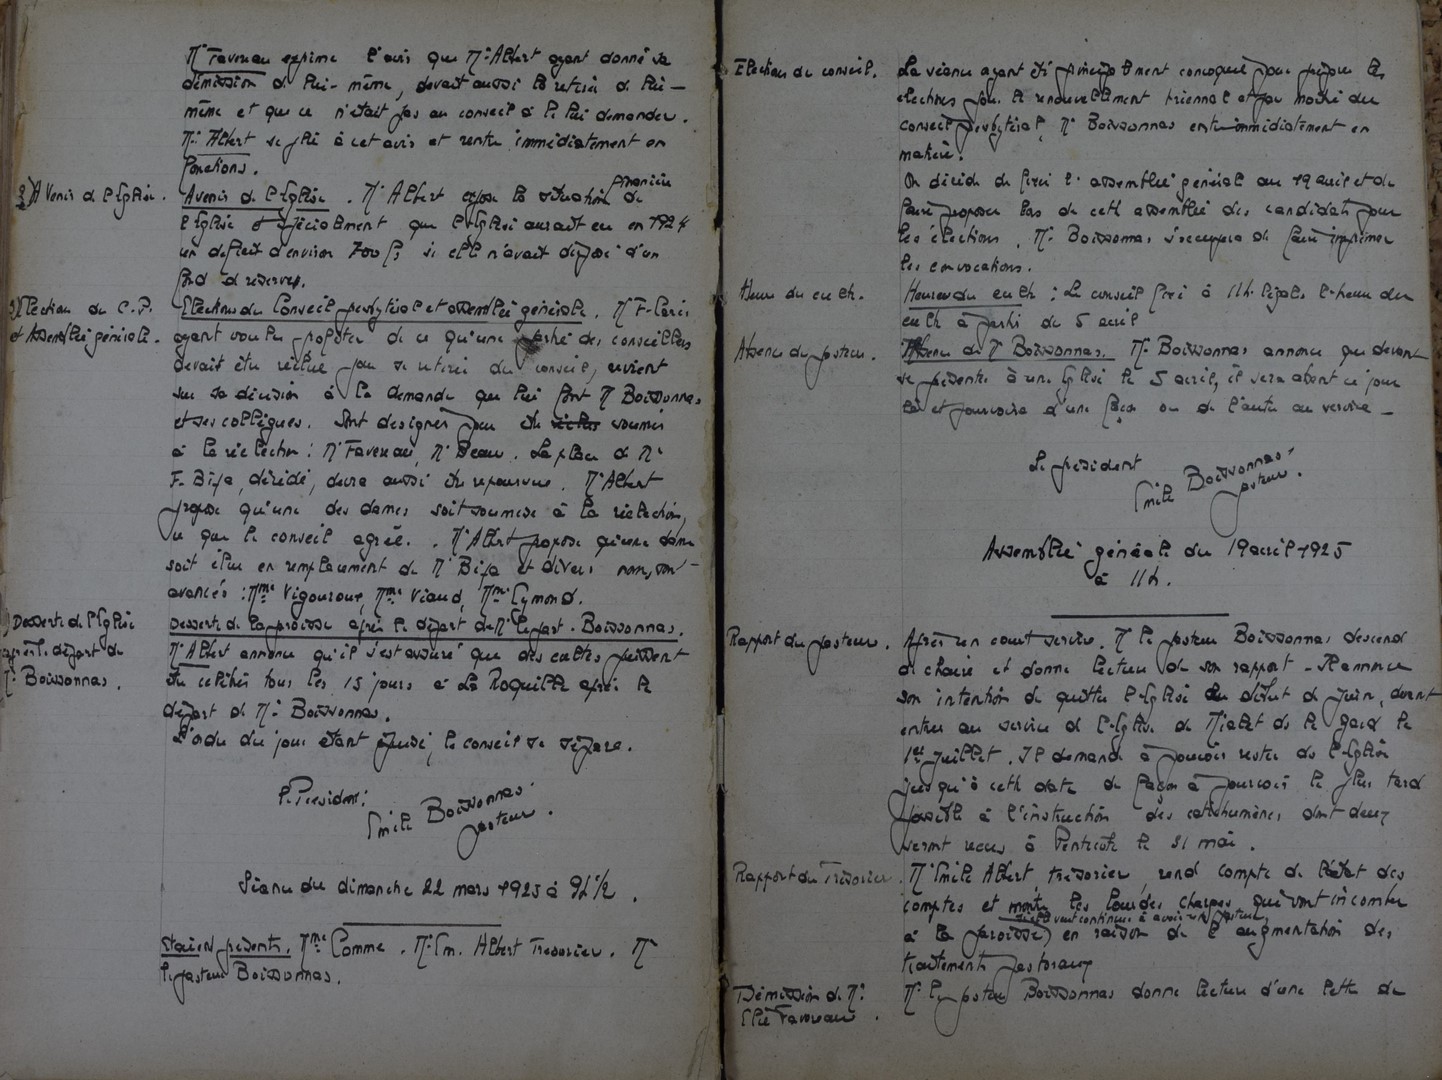 Mr Favereau exprime l'avis que Mr Albert ayant donné sa
démission de lui-même, devait aussi la retirer de lui-
même et que ce n'était pas au conseil à le lui demander.
Mr Albert se plie à cet avis et rentre immédiatement en
fonctions.
2) Avenir de l'Eglise.
Avenir de l'Eglise. Mr Albert expose la situation financière de
l'Eglise et spécialement que l'Eglise aurait eu en 1924
un déficit d'environ 7000 frs si elle n'avait disposé d'un
fond de réserves.
3) Election du C.P.
et Assemblée générale.
Elections du Conseil presbytéral et assemblée générale. Mr F.
ayant voulu profiter de ce qu'une partie des conseillers
devait être réélue pour se retirer du conseil, revient
sur sa décision à la demande que lui font Mr Boissonnas
et ses collègues. Sont désignés pour être soumis
à la réélection: Mr Favereau, Mr Beau. La place de Mr
F. décédé, devra aussi être repourvue. Mr Albert
propose qu'une des dames soit soumise à la réélection,
ce que le conseil agrée. Mr Albert propose qu'une dame
soit élue en remplacement de Mr et divers noms sont
avancés: Mme Vigouroux, Mme Viaud, Mme Eymond.
Desserte de l'Eglise
après le départ de
Mr Boissonnas.
Desserte de la paroisse après le départ de Mr le past. Boissonnas.
Mr Albert annonce qu'il s'est assuré que des cultes puissent
être célébrés tous les 15 jours à La Roquille après le
départ de Mr Boissonnas.
L'ordre du jour étant épuisé, le conseil se sépare.
Le Président:
Emile Boissonnas
pasteur.
Séance du dimanche 22 mars 1925 à 9h 1/2.
Etaient présents. Mme Comme. Mr Em. Albert Trésorier. Mr
le pasteur Boissonnas.
Election du conseil.
La séance ayant été principalement convoquée pour préparer les
élections pour le renouvellement triennal et par moitié du
conseil presbytéral, Mr Boissonnas entre immédiatement en
matière.
On décide de fixer l'assemblée générale au 19 avril et de
faire proposer lors de cette assemblée des candidats pour
les élections. Mr Boissonnas s'occupera de faire imprimer
les convocations.
Heure du culte.
Heures du culte: Le conseil fixe à 11h. légales l'heure du
culte à partir du 5 avril
Absence du pasteur.
Absence de Mr Boissonnas. Mr Boissonnas annonce que devant
se présenter à une Eglise le 5 avril, il sera absent ce jour
là et pourvoira d'une façon ou de l'autre au service_
Le président
Emile Boissonnas
pasteur.
Assemblée générale du 19 avril 1925
à 11h.
Rapport du pasteur.
Après un court service. Mr le pasteur Boissonnas descend
de chaire et donne lecture de son rapport - Il annonce
son intention de quitter l'Eglise au début de Juin, devant
entrer au service de l'Eglise de Mialet ds le Gard le
1er Juillet. Il demande à pouvoir rester ds l'Eglise
jusqu'à cette date de façon à pourvoir le plus tard
possible à l'instruction des catéchumènes dont deux
seront reçus à Pentecôte le 31 mai.
Rapport du Trésorier.
Mr Emile Albert, trésorier, rend compte de l'état des
comptes et montre les lourdes charges qui vont incomber
si elle veut continuer à avoir un pasteur,
à la paroisse) en raison de l'augmentation des
traitements pastoraux
Démission de Mr
Elie Favereau.
Mr le pasteur Boissonnas donne lecture d'une lettre de